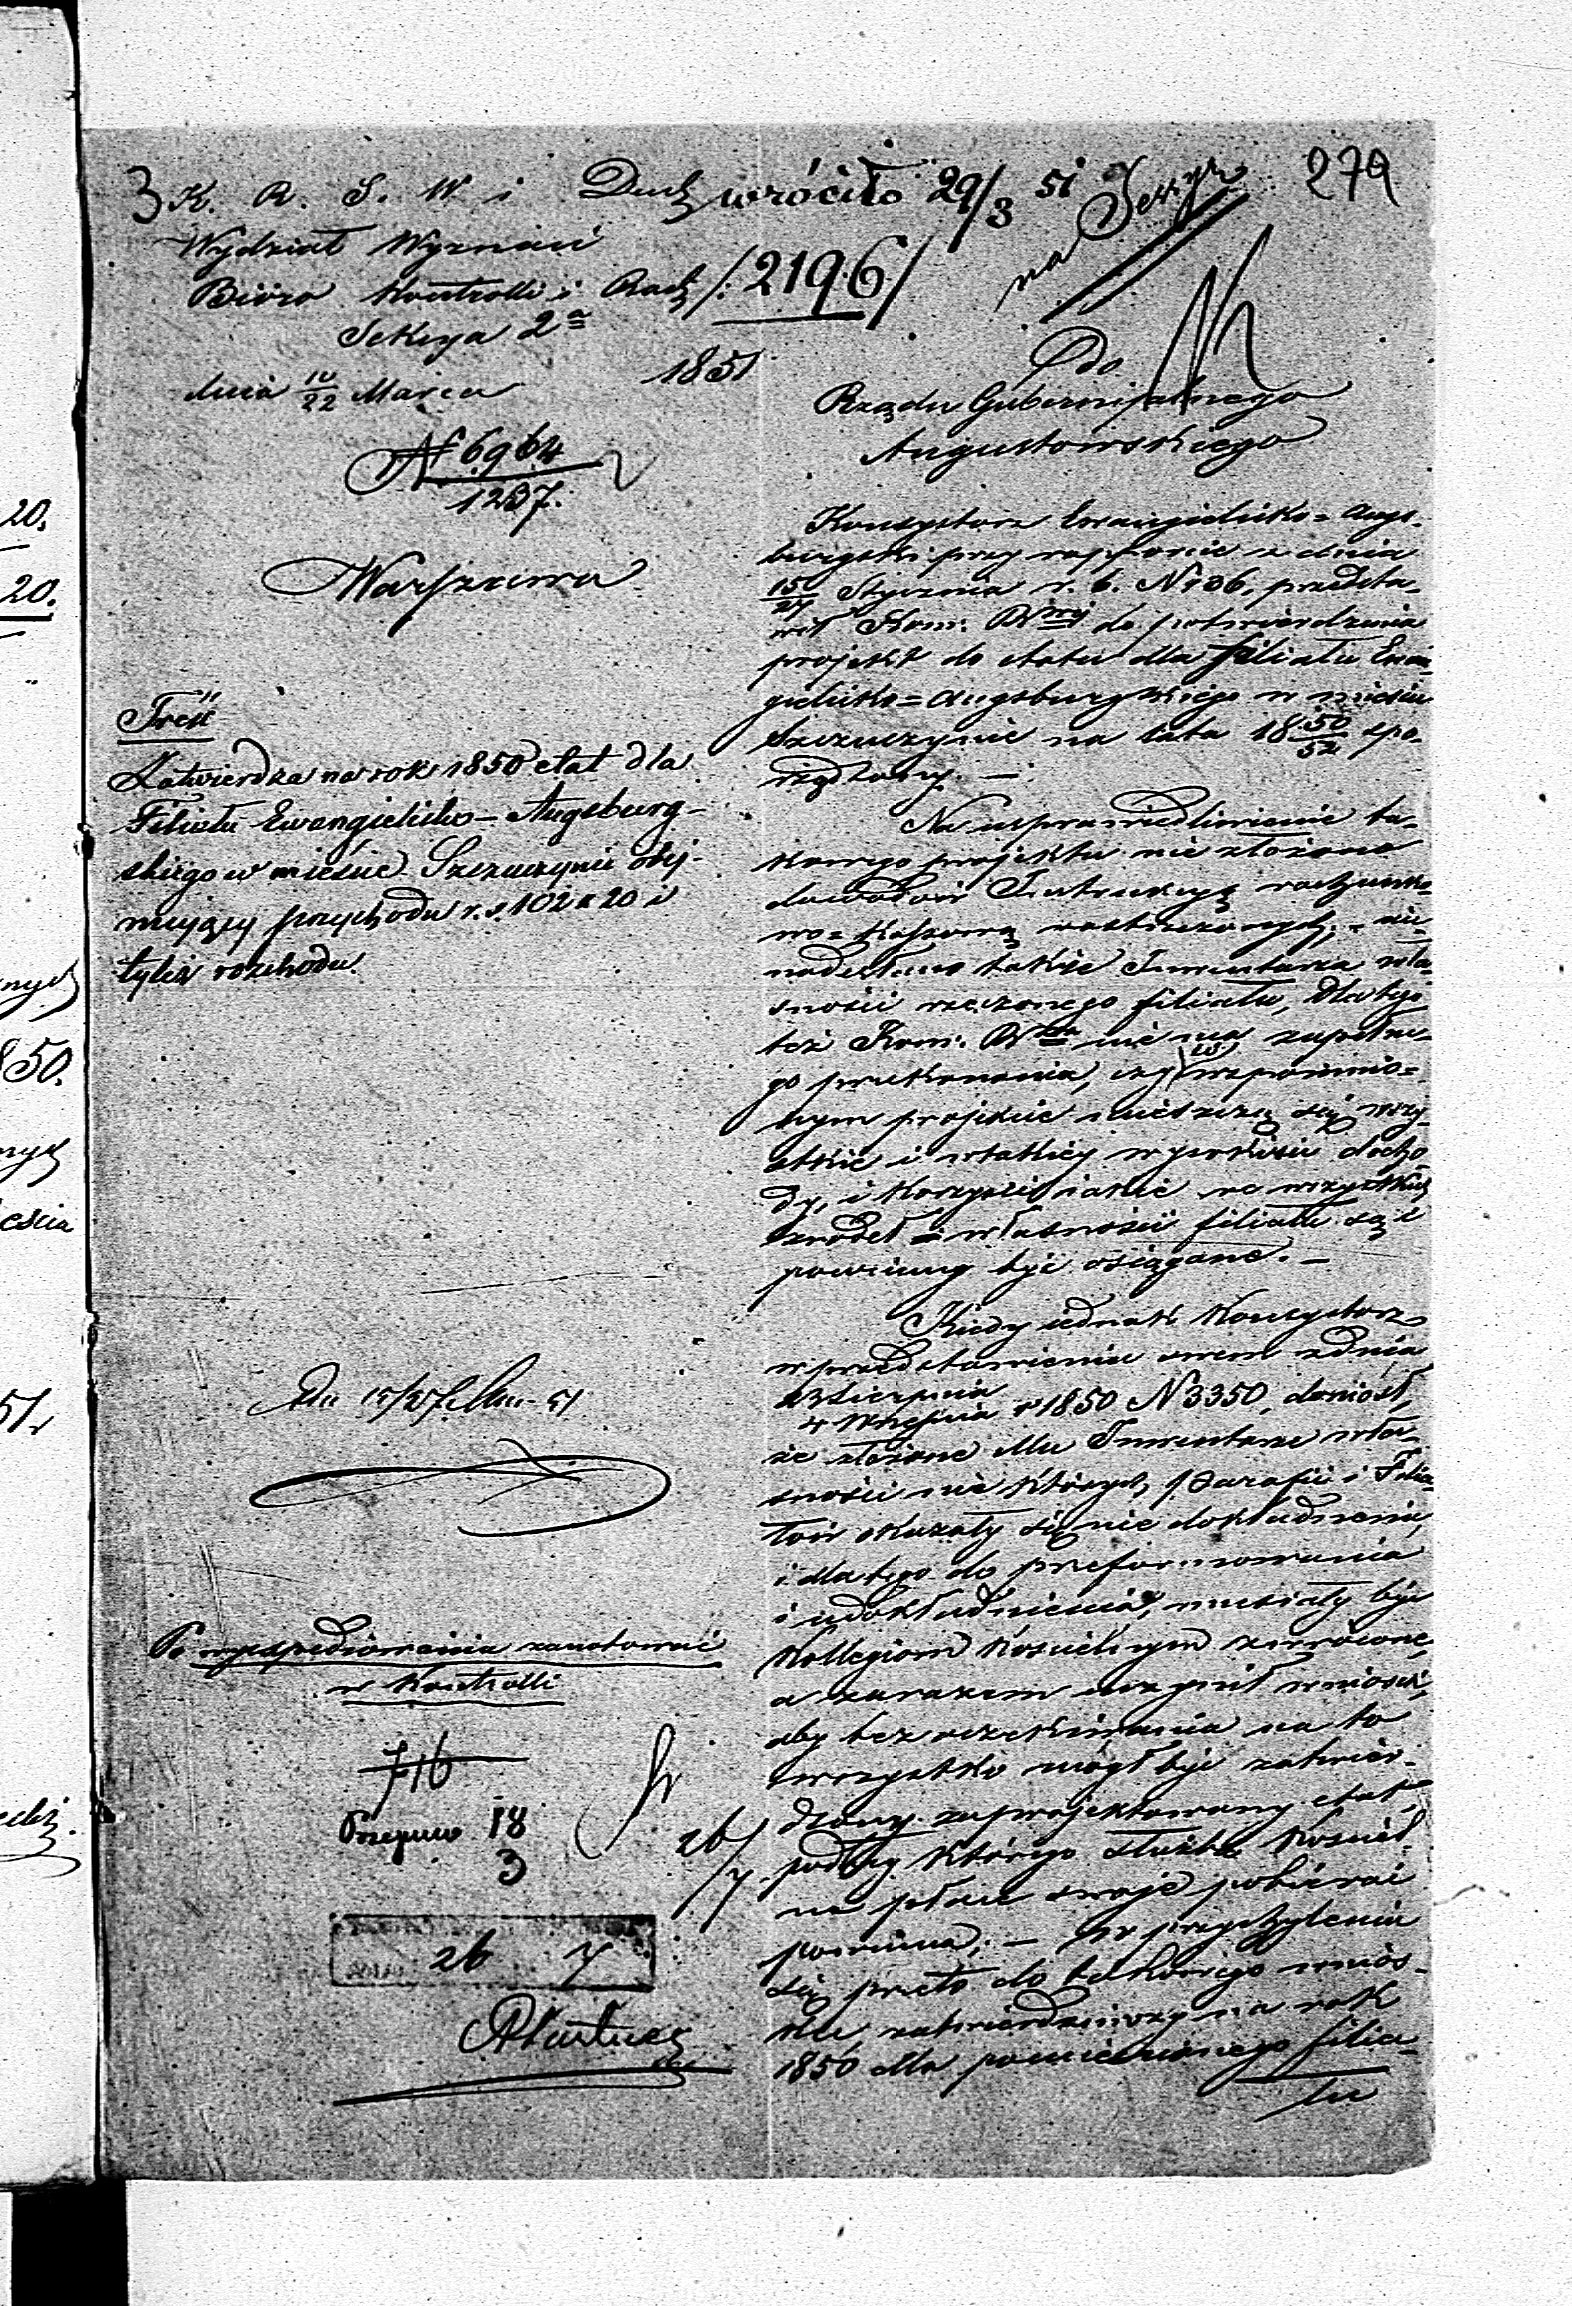 K. R. S. W. i Duch wróciło 29/3 51 279
Wydział Wyznań
Bióro Kontrolli i Rach /:2196/
Sekcya 2a
dnia 10/22 Marca 1851
N 6964
1237.
Warszawa
Do
Rządu Gubernijalnego
Augustowskiego
Treść
Zatwierdza na rok 1850 etat dla
Filiału Ewangielicko-Augsburg-
skiego w mieście Szczuczynie obej-
mujący przychodu r.s. 102 k 20 i
tyleż rozchodu.
Po wyexpediowaniu zanotować
w Kontrolli
716
Przepisw 18
3
26/7
26 7
Konsystorz Ewangielicko=Augs-
burgski przy rapporcie z dnia
15/27 Stycznia r. b. N 186, przedsta-
wił Kom: Rwej do potwierdzenia
projekt do etatu dla filiału Ewan-
gielicko=Augsburgskiego w mieście
Szczuczynie na lata 1850/52 spo-
rządzony. —
Na usprawiedliwienie ta-
kowego projektu nie złożono
dowodów Instrukcyą rachunko-
wo=Kassową zastrzeżonych, - nie
nadesłano także Inwentarza wła-
sności rzeczonego filiału, Dlatego
też Kom: Rwa nie ma zupełne-
go przekonania, czy w wspomnio-
nym projekcie mieszczą się wszy-
stkie i w takiej wysokości docho-
dy, i korzyści jakie ze wszystkich
źródeł i własności filiału są i
powinny być osiągane. —
Kiedy jednak Konsystorz
w przedstawieniu swem z dnia
23 Sierpnia
4 Września r 1850 N 3350, doniósł,
że złożone Mu Inwentarze wła-
sności nie których Parafii i Filia-
łów okazały się nie dokładnemi,
i dla tego do przeformowania
i udokładnienia, musiały być
Kollegiom Kościelnym zwrócone,
a zarazem uczynił wniosek,
aby bez oczekiwania na to
wszystko mógł być zatwier-
dzony zaprojektowany etat,
podług którego służba kościel-
na płace swoje pobierać
powinna; — w przychyleniu
się przeto do takowego wnios-
ku zatwierdziwszy na rok
1850 dla pomienionego filia-
łu